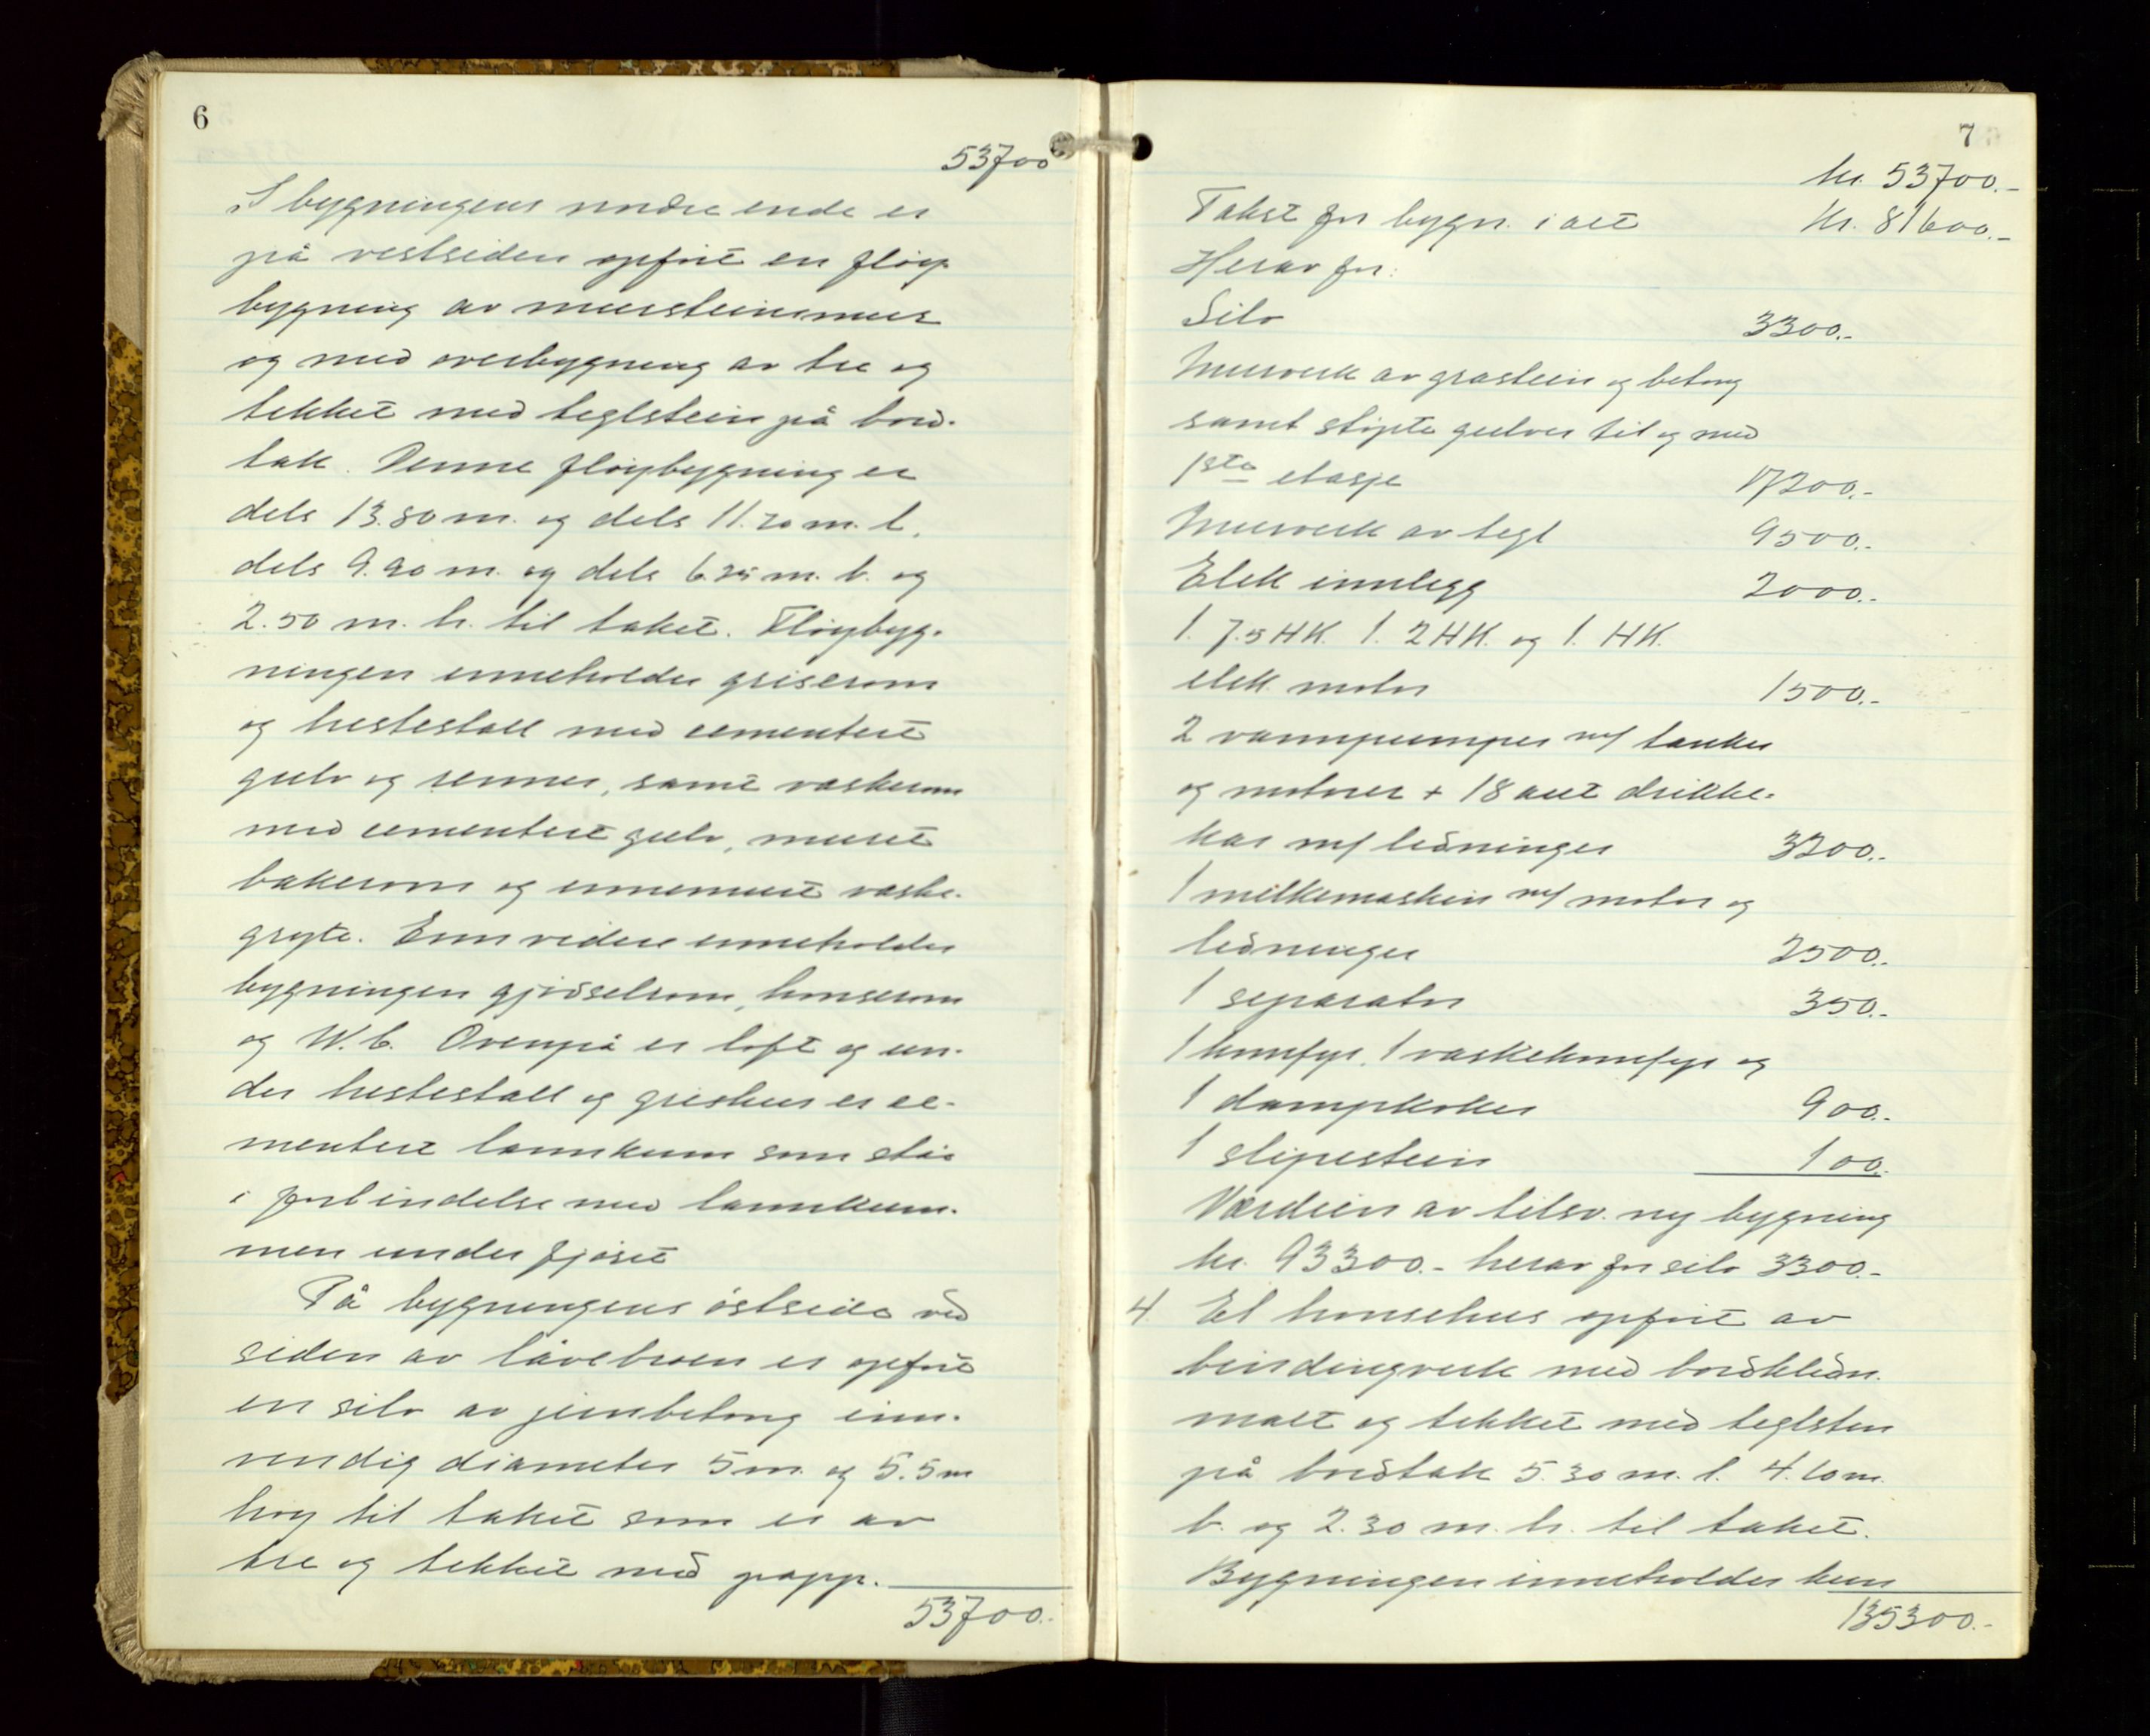 6
53700
I bygningens nordre ende er
på vestsiden opført en fløy
bygning av mursteinsmur
og med overbygning av tre og
tekket med teglstein på bord-
tak. Denne fløybygning er
dels 13.80 m. og dels 11.20 m. l.
dels 9.90 m. og dels 6.25 m. b. og
2.50 m. h. til taket. Fløybyg-
ningen inneholder griserom
og hestestall med cementert
gulv og renner, samt vaskerom
med cementert gulv, muret
bakerovn og innemuret vaske-
gryte. Enn videre inneholder
bygningen gjødselrom, hønserom
og W.C. Ovenpå er loft og un-
der hestestall og grishus er ce-
mentert lannkum som står
i forbindelse med lannkum-
men under fjøset
På bygningens østside ved
siden av låvebroen er opført
en silo av jernbetong inn-
vendig diameter 5 m. og 5.5 m
høy til taket som er av
tre og tekket med papp.
53700.-
7
kr. 53700.-
Takst for bygn. i alt kr. 81600.-
Herav for:
Silo 3300.-
Murverk av gråstein og betong
samt støpte gulver til og med
1ste etasje 17200.-
Murverk av tegl 9500.-
Elek innlegg 2000.-
1. 7.5 HK. 1. 2 HK. og 1. HK.
elek. motor 1500.-
2 vannpumper m/ tanker
og motorer + 18 aut drikke-
kar m/ ledninger 3200.-
1 melkemaskin m/ motor og
ledninger 2500.-
1 separator 350.-
1 komfyr, 1 vaskekomfyr og
1 dampkoker 900.-
1 slipestein 100.-
Verdien av tilsv. ny bygning
kr. 93300.- herav for silo 3300.-
4. Et hønsehus opført av
bindingverk med bordkledn.
malt og tekket med teglsten
på bordtak 5.30 m. l. 4.10 m.
b. og 2.30 m. h. til taket.
Bygningen inneholder kun
135300.-